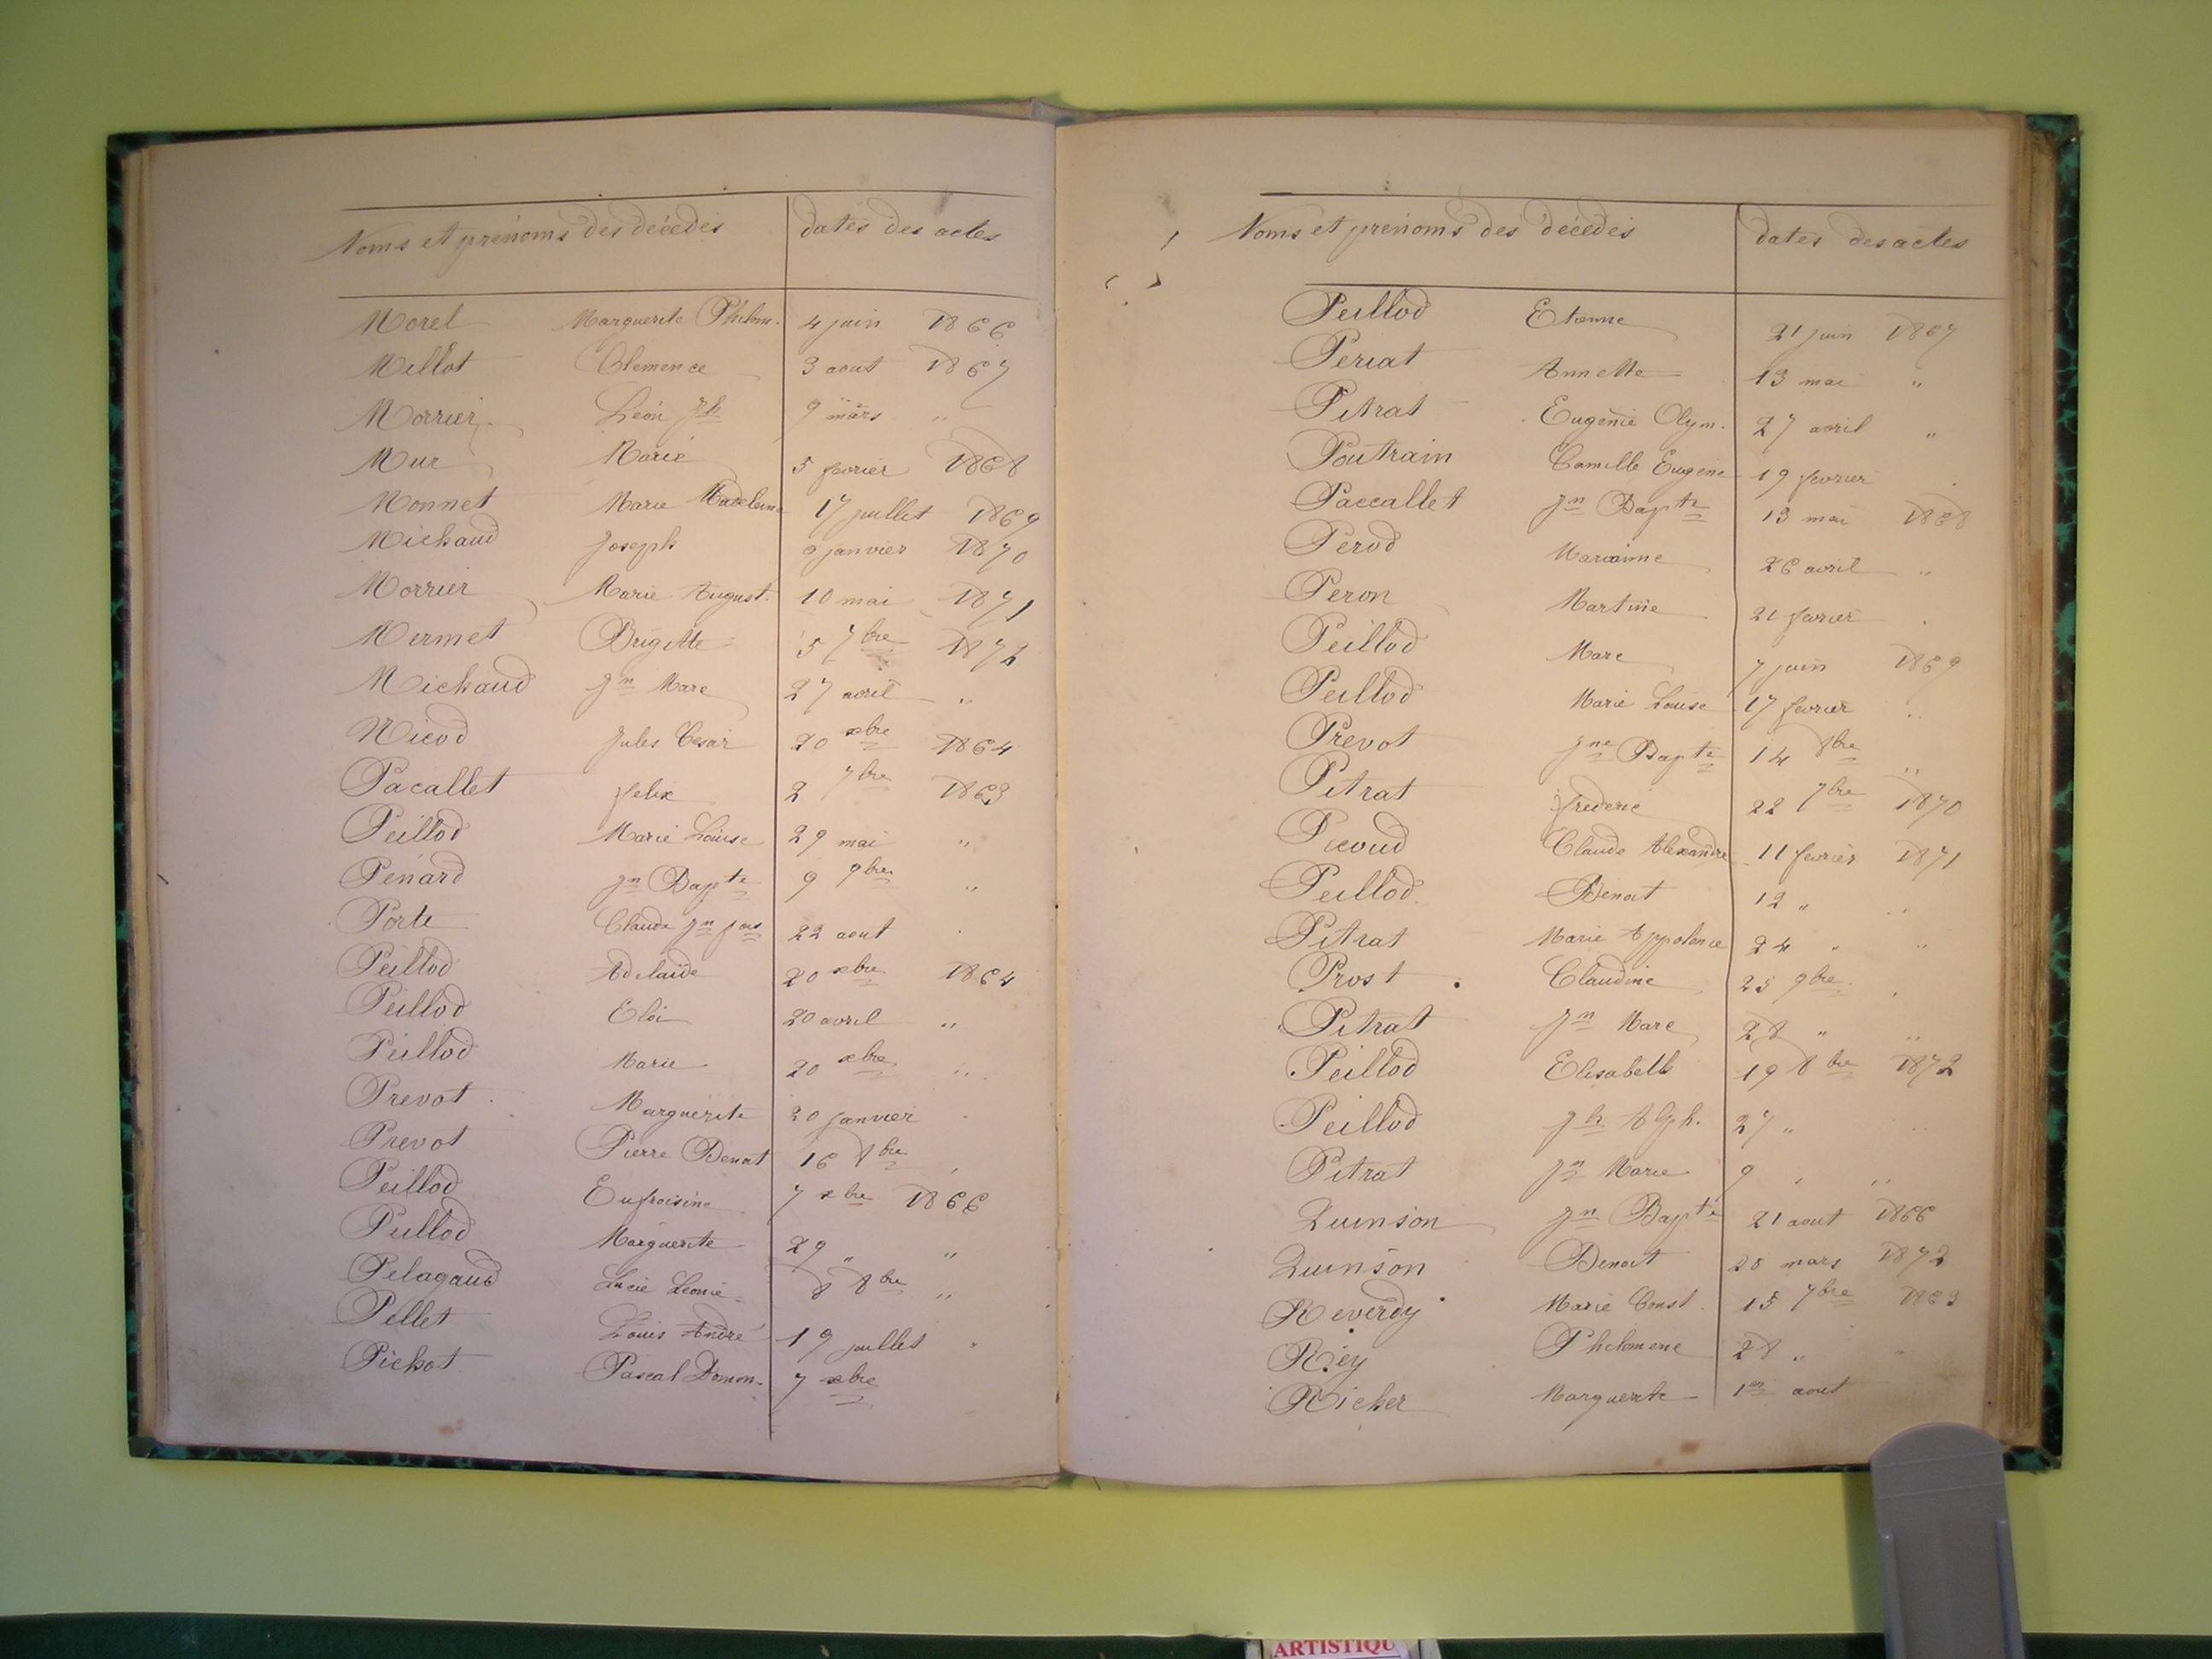 Noms et prénoms des décédés dates des actes
Morel Marguerite Philom. 4 juin 1866
Millot Clemence 3 aout 1867
Morrier Léon Jh 9 mars "
Mur Marie 5 fevrier 1868
Monnet Marie Madeleine 17 juillet 1869
Michaud Joseph 9 janvier 1870
Morrier Marie August. 10 mai 1871
Mermet Brigitte 5 7bre 1872
Michaud Jn Marc 27 avril "
Nicod Jules Cesar 20 xbre 1864
Pacallet felix 2 7bre 1863
Peillod Marie Louise 29 mai "
Penard Jn Bapte 9 9bre "
Porte Claude Jn 22 aout "
Peillod Adelaïde 20 xbre 1864
Peillod Eloi 20 avril "
Peillod Marie 20 xbre "
Prevot Marguerite 20 janvier "
Prevot Pierre Benoit 16 8bre "
Peillod Eufroisine 7 xbre 1866
Peillod Marguerite 29 " "
Pelagaud Lucie Léonie 8 8bre "
Pellet Louis André 19 juillet "
Pichot Pascal Domon. 7 xbre
Noms et prénoms des décédés dates des actes
Peillod Etienne 21 juin 1867
Periat Annette 13 mai "
Pitrat Eugénie Olym. 27 avril "
Poutrain Camille Eugène 19 fevrier "
Paccallet Jn Bapte 13 mai 1868
Perod Marianne 26 avril "
Peron Martine 21 fevrier "
Peillod Marc 7 juin 1869
Peillod Marie Louise 17 fevrier "
Prevot Jne Bapte 14 8bre "
Pitrat frederic 22 7bre 1870
Picoud Claude Alexandre 11 fevrier 1871
Peillod Benoit 12 " "
Pitrat Marie Appolonie 24 " "
Prost Claudine 25 9bre "
Pitrat Jn Marc 28 " "
Peillod Elisabeth 19 8bre 1872
Peillod Jh Alph. 27 " "
Pitrat Jn Marie 9 " "
Quinson Jn Bapte 21 aout 1866
Quinson Benoit 28 mars 1872
Reverdy Marie Const. 15 7bre 1863
Rey Philomene 28 " "
Richer Marguerite 1er aout
ARTISTIQU